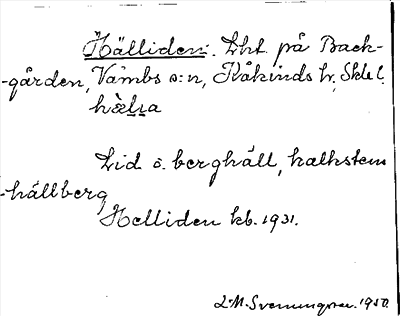 Hälliden: Lht på Back-
-gården, Våmbs s:n, Kåkinds hr, Skbl.
Lid o. berghäll, kalksten
-hällberg
Helliden kb. 1931.
L.M. Svenungsson. 1950.